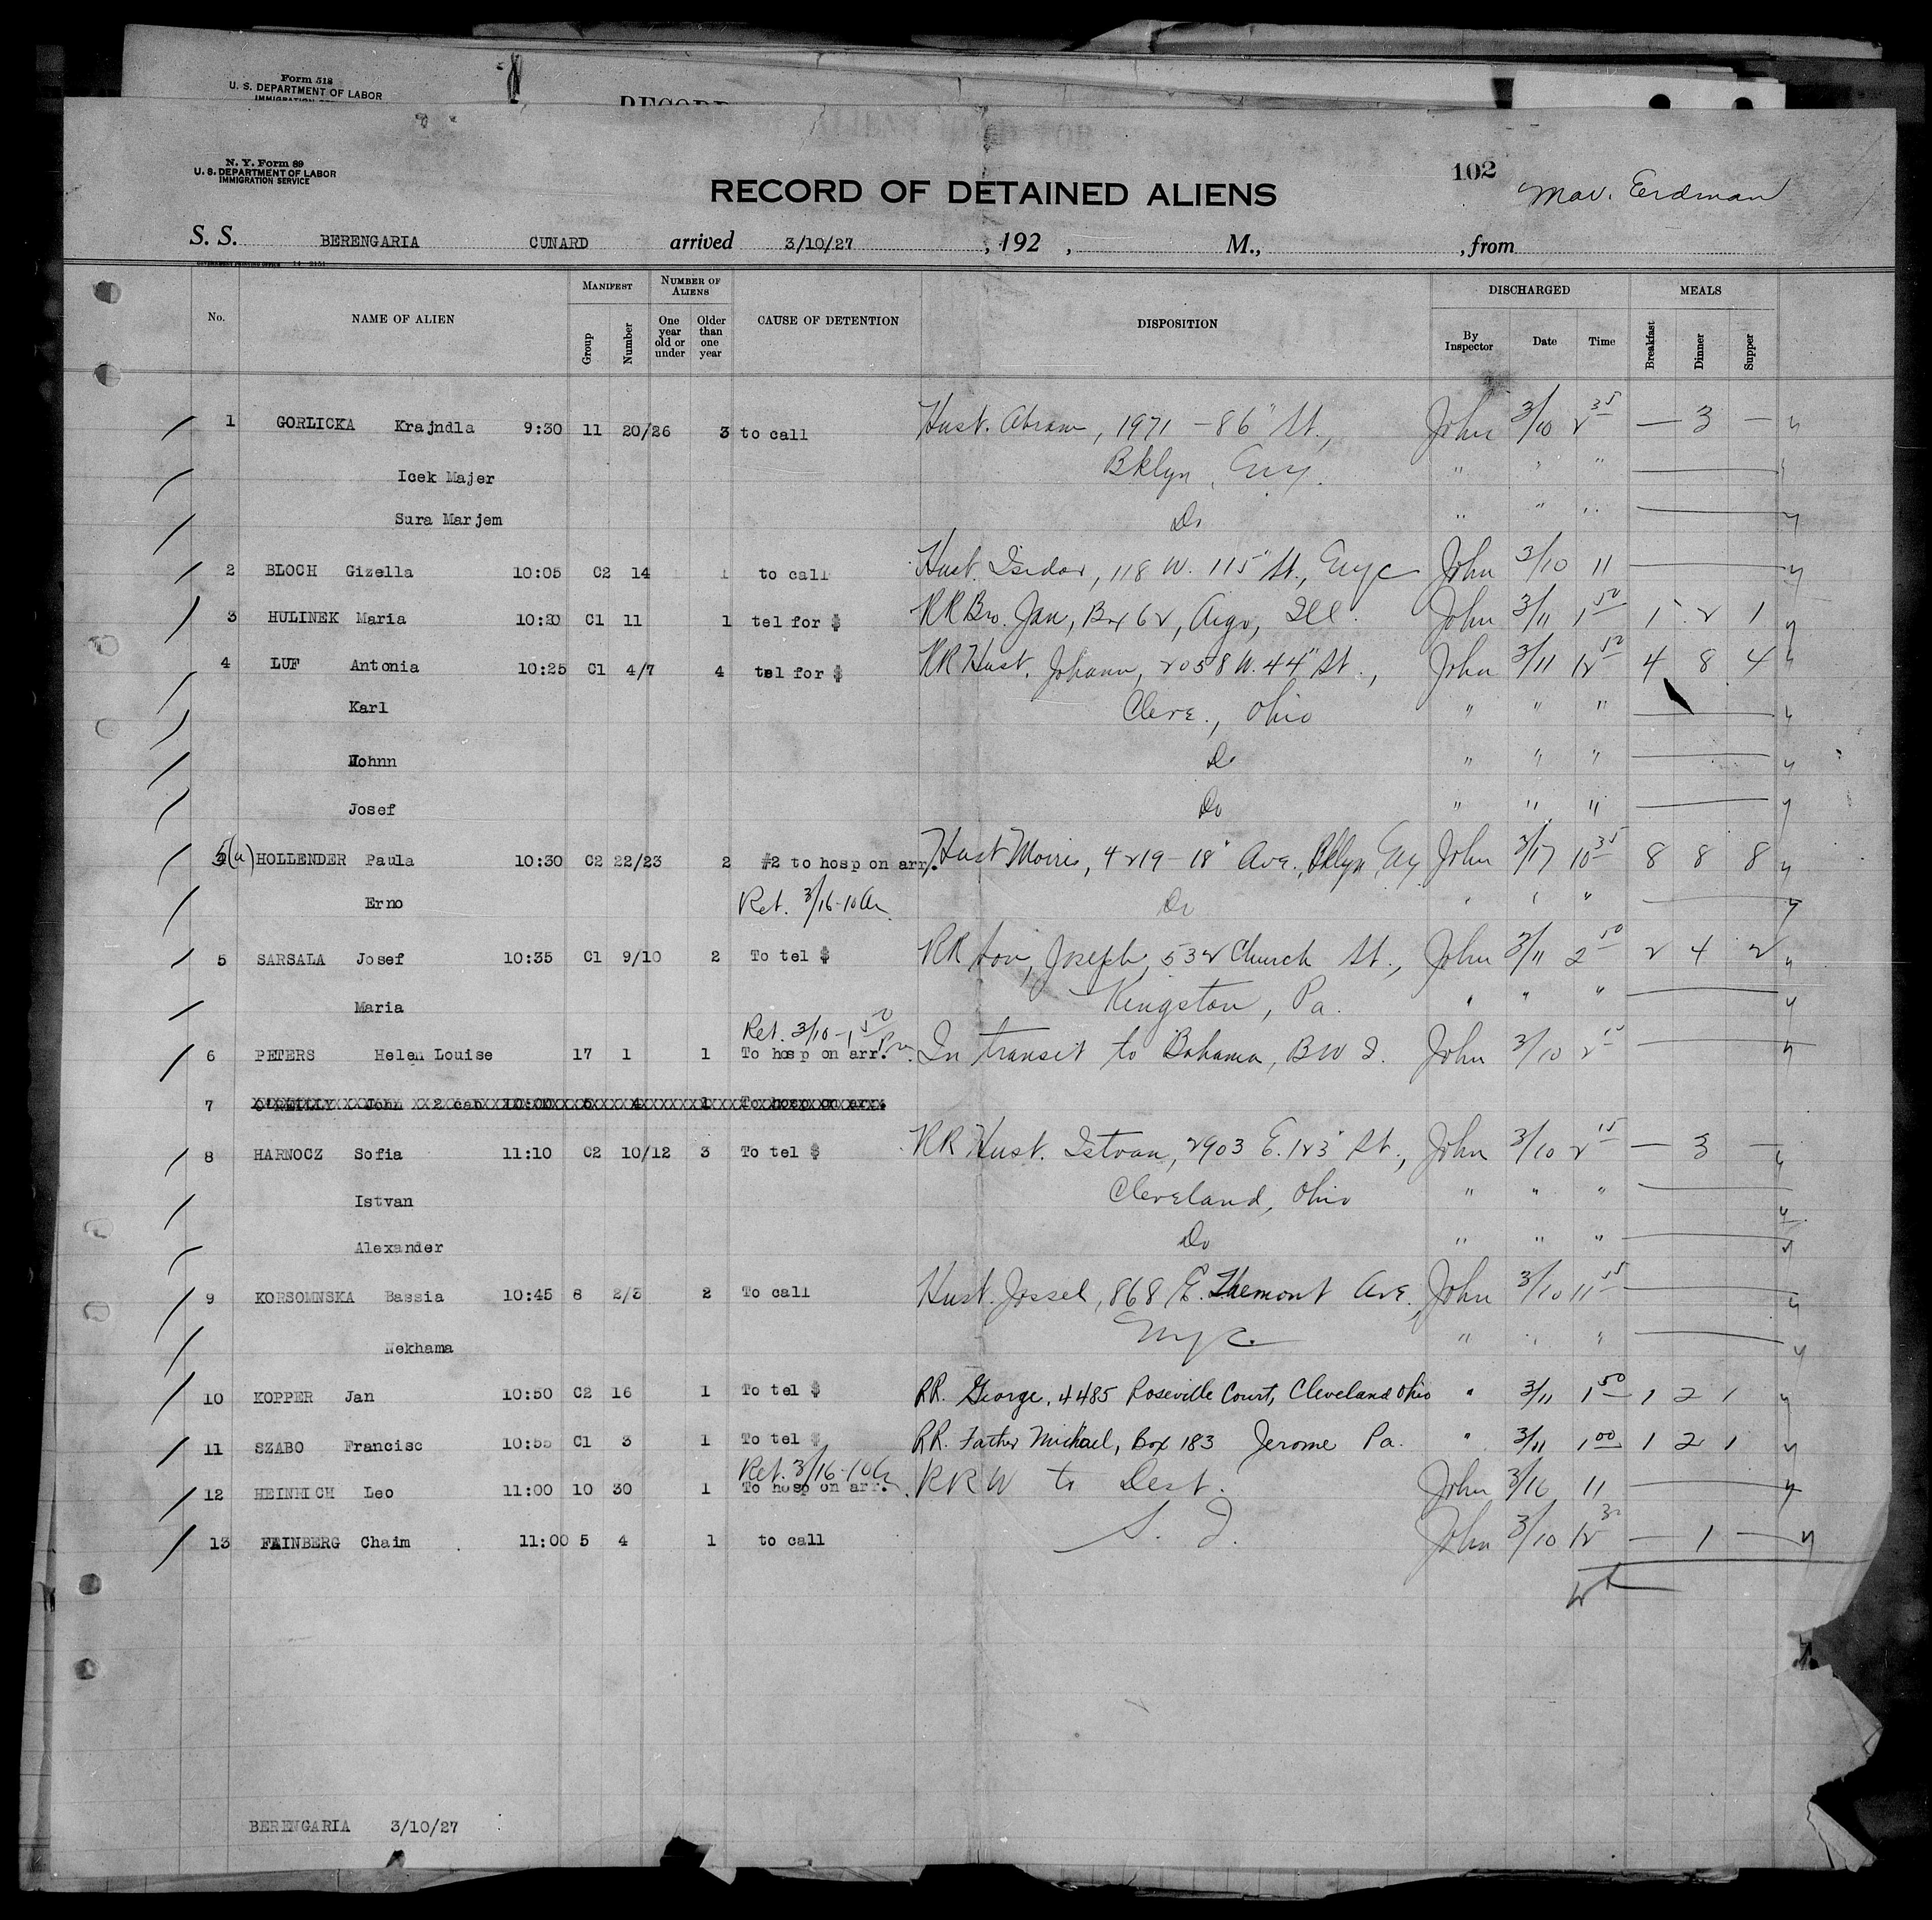 Form 518
U. S. DEPARTMENT OF LABOR
RECORD
N. Y. Form 89
U. S. DEPARTMENT OF LABOR
IMMIGRATION SERVICE
102
RECORD OF DETAINED ALIENS
Mav. Erdman
S. S. BERENGARIA CUNARD arrived 3/10/27, 192 , M., , from
No. NAME OF ALIEN MANIFEST Group Number NUMBER OF ALIENS One year old or under Older than one year CAUSE OF DETENTION DISPOSITION DISCHARGED By Inspector Date Time MEALS Breakfast Dinner Supper
1 GORLICKA Krajndla 9:30 11 20/26 3 to call Husb. Abram, 1971 - 86" St., John 3/10 2 35 — 3 —
Icek Majer Bklyn, " " "
Sura Marjem Do " " "
2 BLOCH Gizella 10:05 C2 14 1 to call Husb. Isidor, 118 W. 115" St., NYC John 3/10 11
3 HULINEK Maria 10:20 C1 11 1 tel for $ RR Bro. Jan, Box 62, Argo, Ill. John 3/11 1 50 1 2 1
4 LUF Antonia 10:25 C1 4/7 4 tel for $ RR Husb. Johann, 2058 W. 44" St., John 3/11 12 50 4 8 4
Karl Cleve., Ohio " " "
Johnn Do " " "
Josef Do " " "
5(a) HOLLENDER Paula 10:30 C2 22/23 2 #2 to hosp on arr. Husb Morris, 4219 - 18" Ave., Bklyn, NY John 3/17 10 35 8 8 8
Erno Ret. 3/16-10am Do " " "
5 SARSALA Josef 10:35 C1 9/10 2 To tel $ RR Son, Joseph, 532 Church St., John 3/11 2 50 2 4 2
Maria Kingston, Pa. " " "
Ret. 3/10-1 50 Pm
6 PETERS Helen Louise 17 1 1 To hosp on arr. In transit to Bahama, BWI. John 3/10 2 15
7 O'REILLY John 2 cab 10:00 5 4 1 To hosp on arr.
8 HARNOCZ Sofia 11:10 C2 10/12 3 To tel $ RR Husb. Istvan, 2903 E. 123" St., John 3/10 2 15 — 3 —
Istvan Cleveland, Ohio " " "
Alexander Do " " "
9 KORSOMNSKA Bassia 10:45 8 2/3 2 To call Husb. Jossel, 868 E. Tremont Ave. John 3/10 11 55
Nekhama NYC. " " "
10 KOPPER Jan 10:50 C2 16 1 To tel $ RR. George, 4485 Roseville Court, Cleveland Ohio " 3/11 1 50 1 2 1
11 SZABO Francisc 10:55 C1 3 1 To tel $ RR. Father Michael, Box 183 Jerome Pa. " 3/11 1 00 1 2 1
Ret. 3/16-10am
12 HEINRICH Leo 11:00 10 30 1 To hosp on arr. RRW to Dest. John 3/16 11
13 FAINBERG Chaim 11:00 5 4 1 to call S. I. John 3/10 12 30 — 1 —
BERENGARIA 3/10/27